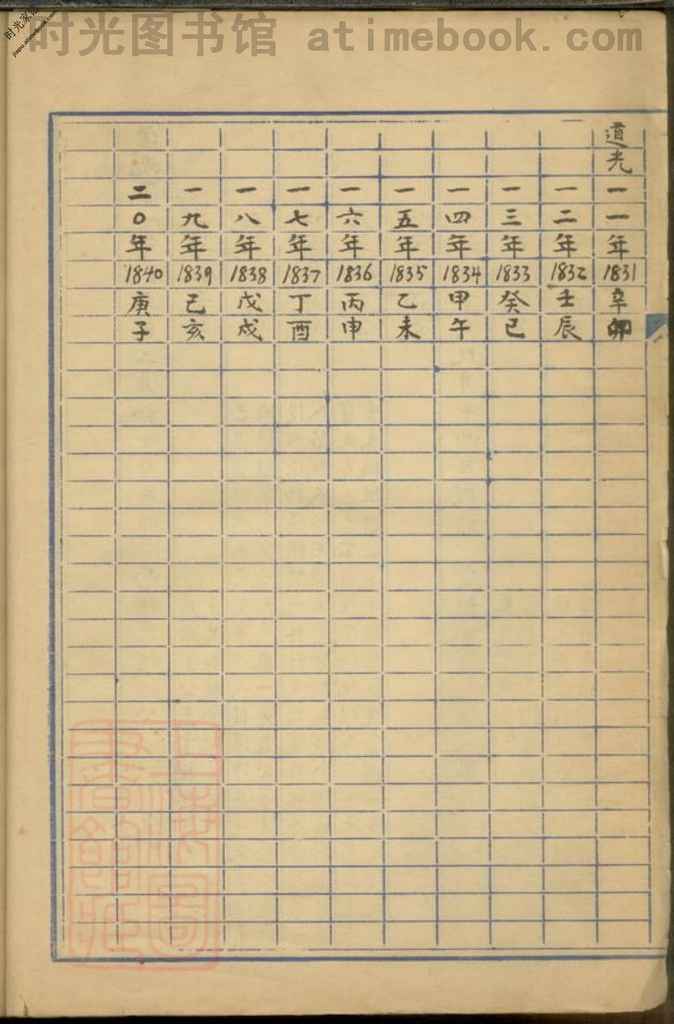 时光图书馆 atimebook.com
道光一一年1831辛卯
一二年1832壬辰
一三年1833癸巳
一四年1834甲午
一五年1835乙未
一六年1836丙申
一七年1837丁酉
一八年1838戊戌
一九年1839己亥
二〇年1840庚子